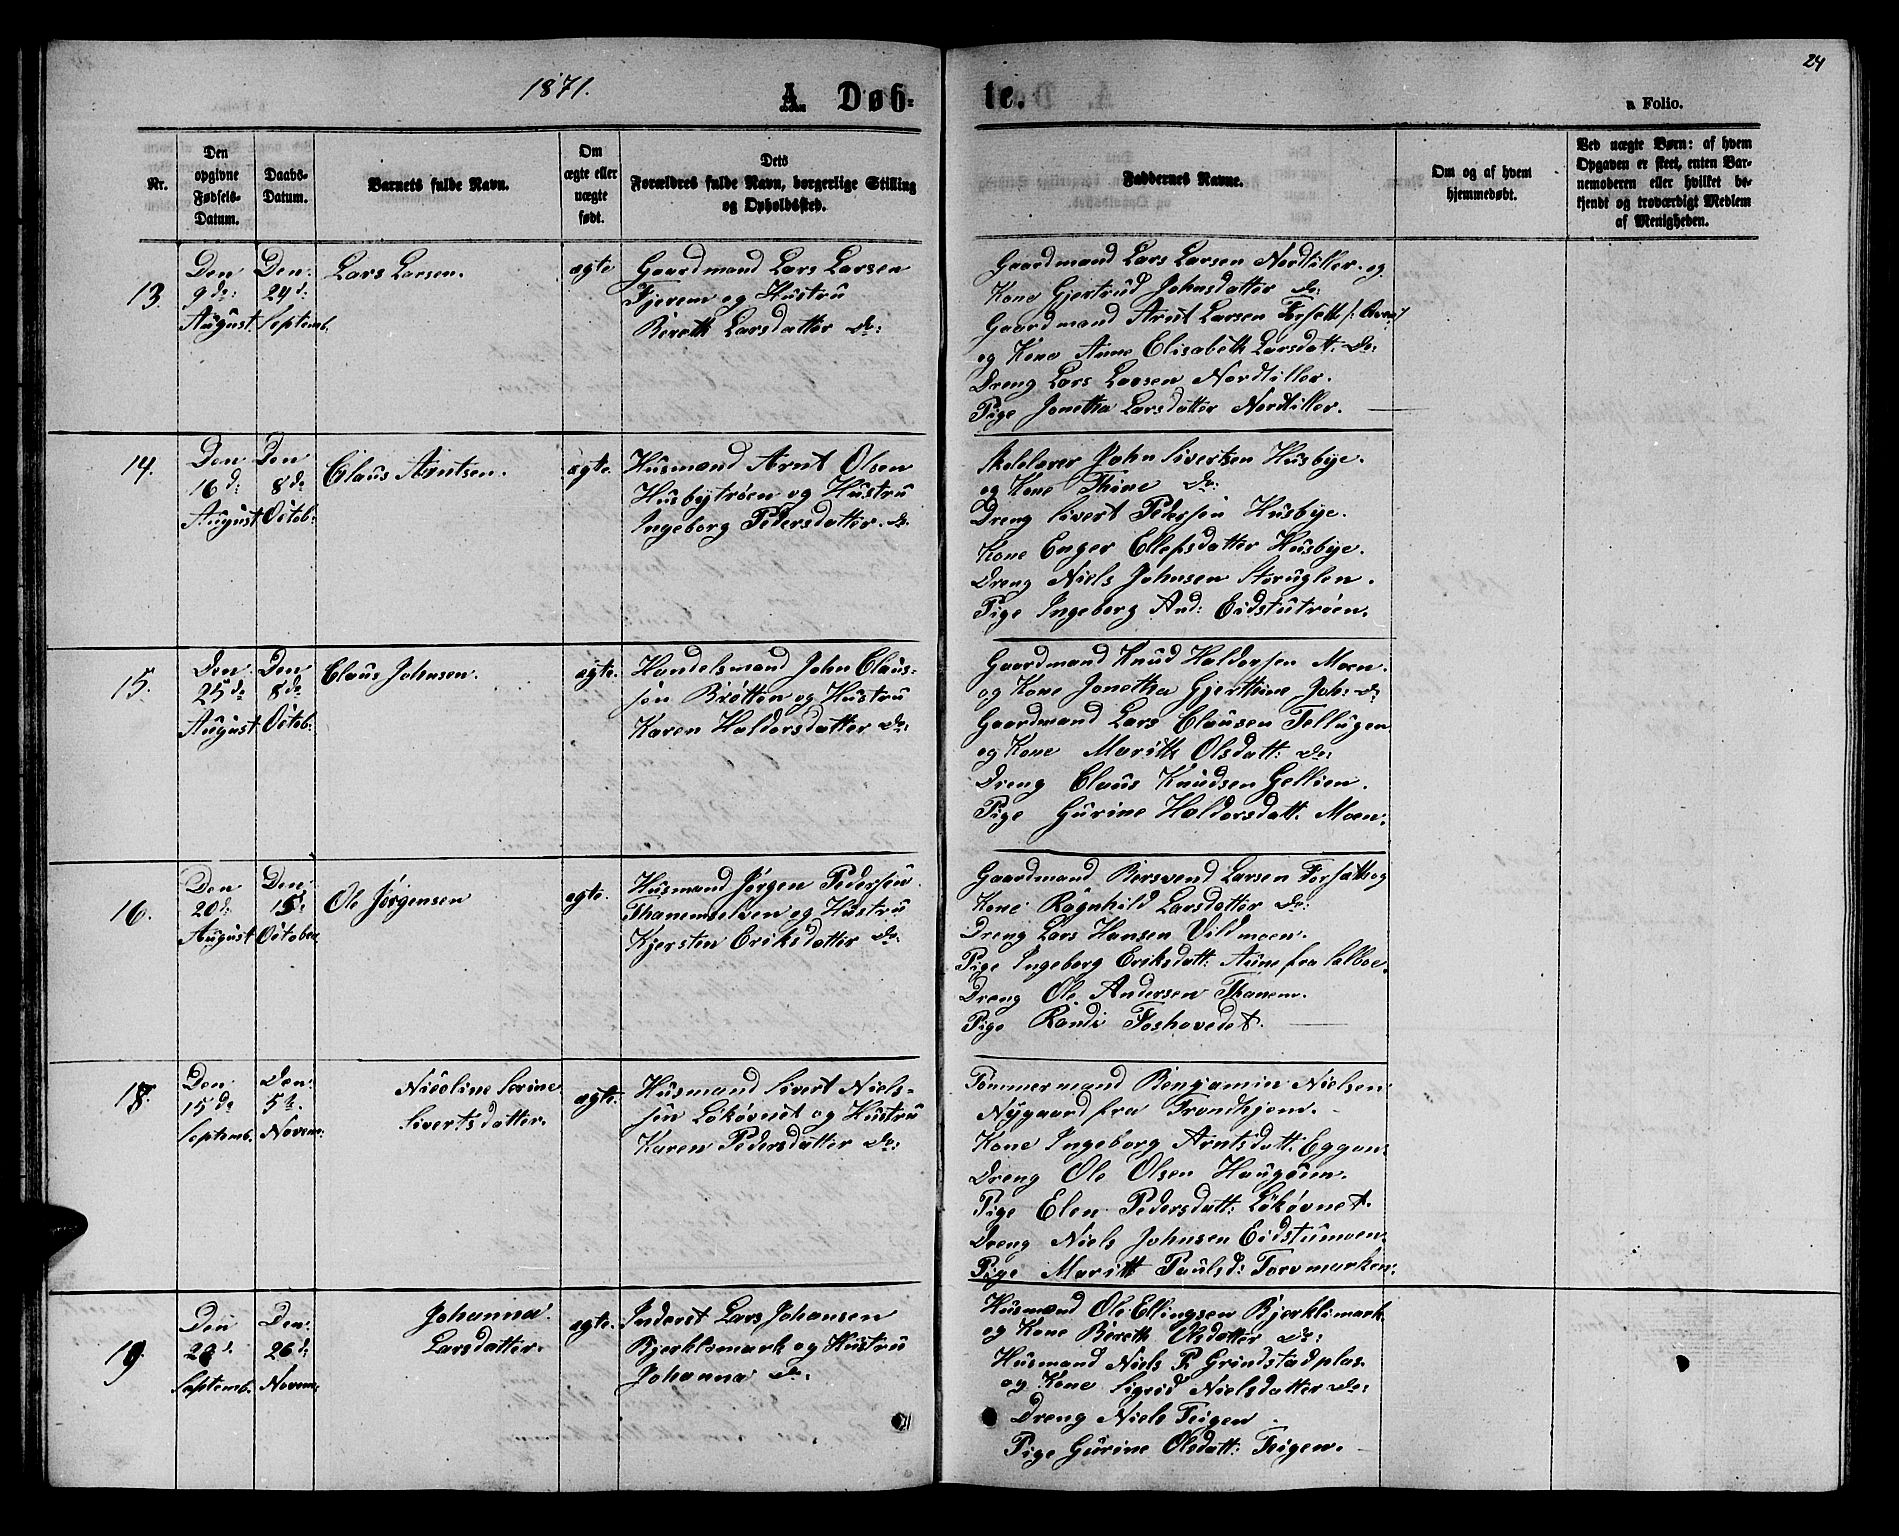 1871.
A. Døb-
te.
24
a Folio.
Nr.
Den
opgivne
Fødsels-
Datum.
Daabs-
Datum.
Barnets fulde Navn.
Om
ægte eller
uægte
født.
Dets
Forældres fulde Navn, borgerlige Stilling
og Opholdssted.
Faddernes Navne.
Om og af hvem
hjemmedøbt.
Ved uægte Børn: af hvem
Opgaven er skeet, enten Bar-
nemoderen eller hvilket be-
kjendt og troværdigt Medlem
af Menigheden.
13.
Den
9de:
August.
Den:
24d:
Septemb.
Lars Larsen.
ægte
Gaardmand Lars Larsen
Tjerem og Hustru
Bereth Larsdatter do:
Gaardmand Lars Larsen Nordtiller. og
Kone Gjertrud Johnsdatter do:
Gaardmand Arnt Larsen Forseth
og Kone Anne Elisabeth Larsdat: do:
Dreng Lars Larsen Nordtiller.
Pige Jonetha Larsdatter Nordtiller.
14.
Den
16d:
August
Den
8de
Octob:
Claus Arntsen.
ægte.
Husmand Arnt Olsen
Husbytrøen og Hustru
Ingeborg Pedersdatter. do.
Skolelærer John Sivertsen Husbye.
og Kone Thine do:
Dreng Sivert Pedersen Husbye.
Kone Enger Ellefsdatter Husbye.
Dreng Niels Johnsen Storuglen.
Pige Ingeborg And: Eidstutrøen.
15.
Den
25de
August
Den
8de
Octob:
Claus Johnsen.
ægte.
Handelsmand John Claus-
sen Brøtten og Hustru
Karen Haldorsdatter do:
Gaardmand Knud Haldorsen Moen.
og Kone Jonetha Gjerthine Joh: do
Gaardmand Lars Clausen Tellugen
og Kone Marith Olsdatt: do:
Dreng Claus Knudsen Gellien.
Pige Gurine Haldorsdatt. Moen.
16.
Den
20d:
August
Den:
15d:
October
Ole Jørgensen
ægte.
Husmand Jørgen Pedersen
Thanemselven og Hustru
Kjersten Eriksdatter do:
Gaardmand Bersvend Larsen Forsæth og
Kone Ragnhild Larsdatter do:
Dreng Lars Hansen Vildmoen.
Pige Ingeborg Eriksdatt: Aune fra Selboe.
Dreng Ole Andersen Thanem.
Pige Randi Foshovedet.
18.
Den
15de
Septemb.
Den:
5te.
Novem:
Nicoline Serine
Sivertsdatter.
ægte.
Husmand Sivert Niels-
sen Løkøvnet og Hustru
Karen Pedersdatter do:
Tømmermand Benjamin Nielsen
Nygaard fra Trondhjem.
Kone Ingeborg Arntsdatt. Eggan:
Dreng Ole Olsen Haugøien.
Pige Elen Pedersdatt: Løkøvnet.
Dreng Niels Johnsen Eidstumoen.
Pige Maritt Paulsd: Torvmarken.
19.
Den
Septemb.
Den:
26d:
Novem:
Johanna
Larsdatter.
ægte.
Inderst Lars Johansen
Bjerklimark og Hustru
Johanna do:
Husmand Ole Ellingsen Bjerklimark
og Kone Bereth Olsdatter do:
Husmand Niels P. Grindstadplas
og Kone Sigrid Nielsdatter do:
Dreng Niels Teigen
Pige Gurine Olsdatt: Teigen.